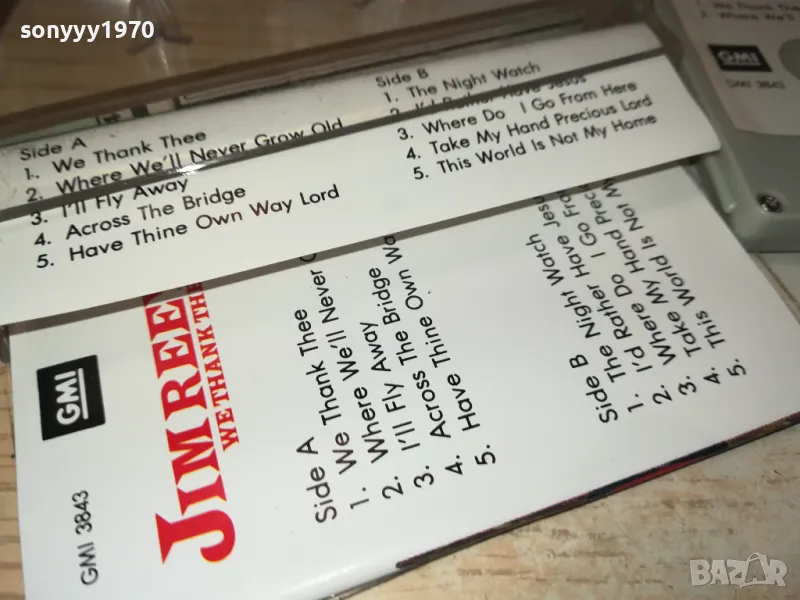 sonyyy1970
Side A
1. We Thank Thee
2. Where We'll Never Grow Old
3. I'll Fly Away
4. Across The Bridge
5. Have Thine Own Way Lord
Side B
1. The Night Watch
2. I'd Rather Have Jesus
3. Where Do I Go From Here
4. Take My Hand Precious Lord
5. This World Is Not My Home
1. We Thank Thee
2. Where We'll
GMI
GMI 3843
GMI
GMI 3843
JIM REE
WE THANK THE
Side A
1. We Thank Thee
2. Where We'll Never
3. I'll Fly Away
4. Across The Bridge
5. Have Thine Own Wa
Side B
1. The Night Watch
2. I'd Rather Have Jesu
3. Where Do I Go Fro
4. Take My Hand Prec
5. This World Is Not My
BAZAR